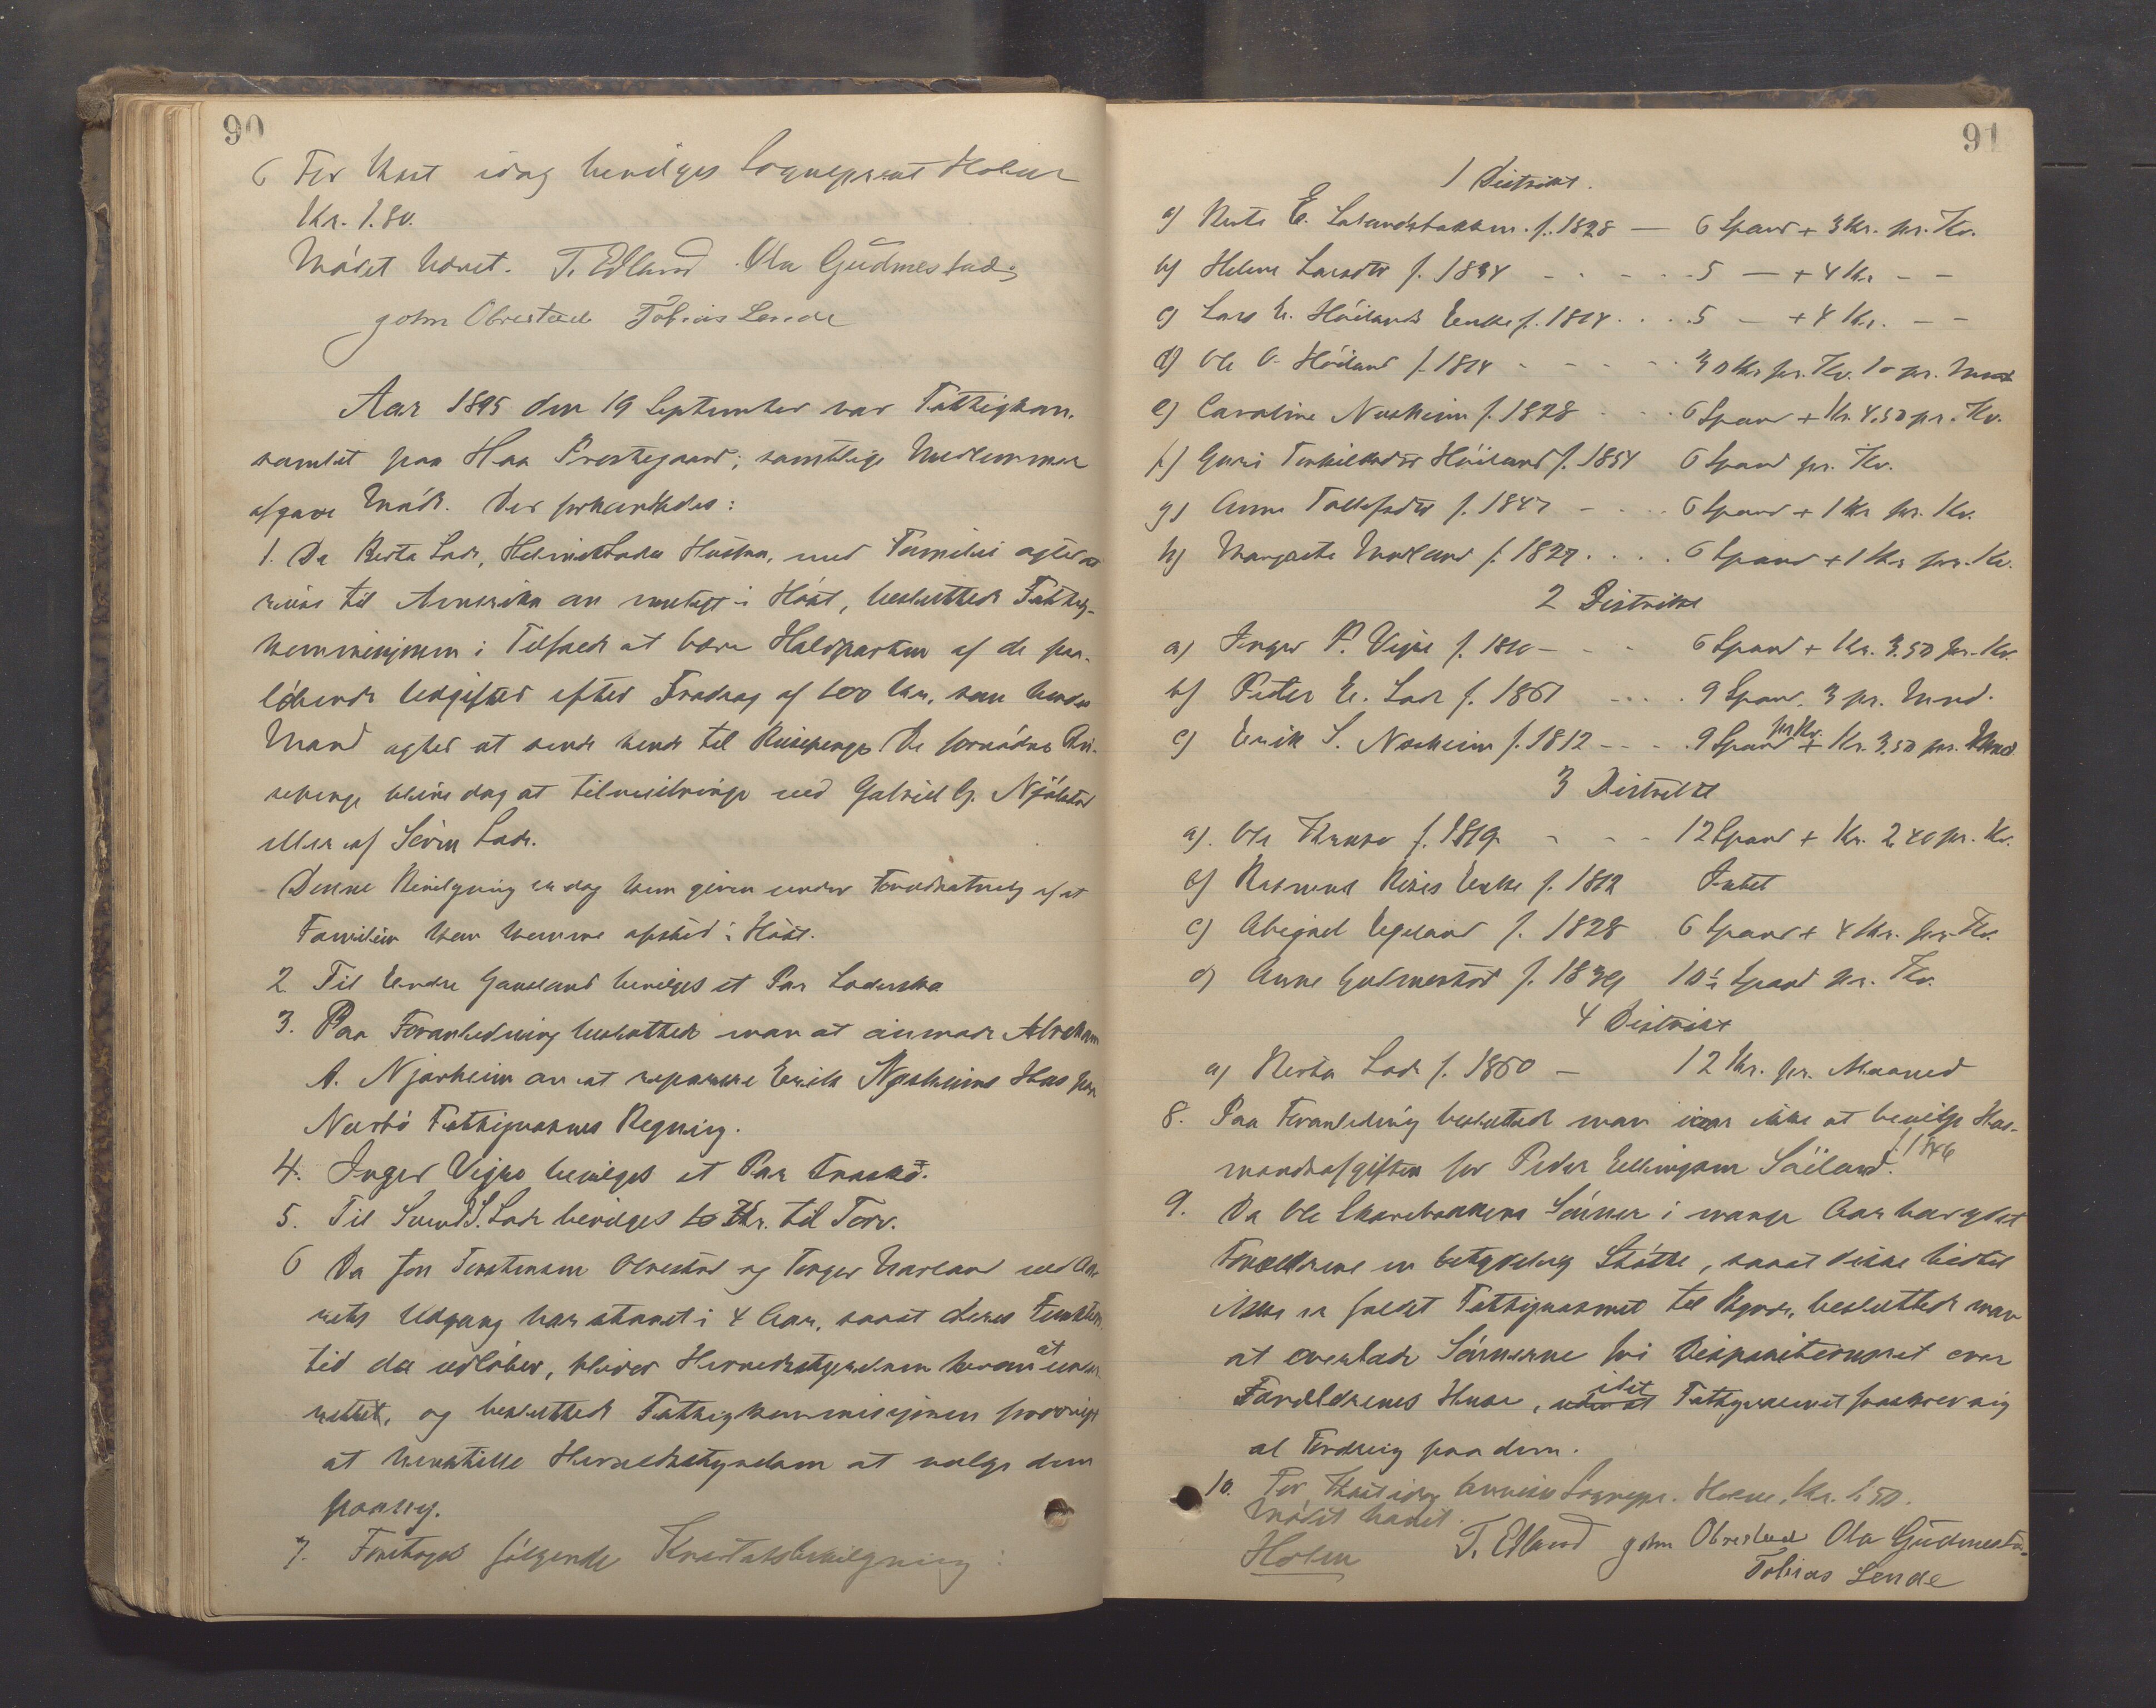 90
6 For Skat idag bevilges Sogneprest Holm
Kr. 1.80.
Mödet hævet. T. Edland Ola Gudmestad
John Obrestad Tobias Lende
Aar 1895 den 19 September var Fattigkom.
samlet paa Haa Prestegaard; samtlige Medlemmer
afgave Möde. Der forhandledes:
1. Da Berta Lode, Helmik Lodes Hustru, med Familie agter at
reise til Amerika om muligt i Höst, besluttede Fattig-
kommisjonen i Tilfælde at bære Halvparten af de paa-
löbende Udgifter efter Fradrag af 100 Kr, som hendes
Mand agter at sende hende til Reisepenge. De fornödne Rei-
sepenge blive dog at tilveiebringe ved Gabriel G. Njölstad
eller af Sören Lode.
Denne Bevilgning er dog kun given under Forudsætning af at
Familien kan komme afsted i Höst.
2 Til Endre Gausland bevilges et Par Lodersko
3. Paa Foranledning besluttede man at anmode Abraham
A. Njærheim om at reparere Erik Njærheims Hus paa
Nærbö Fattigvæsens Regning.
4. Inger Vigre bevilges et Par Træsko.
5. Til Svend S. Lode bevilges 10 Kr. til Torv.
6 Da Jon Torstensen Obrestad og Torger Hærland ved Aa-
rets Udgang har staaet i 4 Aar, saaat deres Funktions
tid da udlöber, bliver Herredsstyrelsen herom at under
rettet, og besluttede Fattigkommisjonen forövrigt
at henstille Herredsstyrelsen at vælge dem
paany.
7. Foretoges fölgende Kvartalsbevilgning:
91
1 Distrikt.
a) Berte E. Lalandsbakken. f. 1828 — 6 Spand + 3 Kr. pr. Kv.
b) Helene Larsdtr f. 1834 - - - - 5 — + 4 Kr — —
c) Lars E. Höilands Enke f. 1814 . . . . 5 — + 4 Kr. — —
d) Ole O. Höiland f. 1814 - - - - 30 Kr pr. Kv. 10 pr. Mnd
e) Caroline Nærheim f. 1828 . . . 6 Spand + Kr. 4,50 pr. Kv.
f) Guri Torkildsdtr Höiland f. 1854 6 Spand pr. Kv.
g) Anne Tollefsdtr f. 1847 - . . . 6 Spand + 1 Kr pr. Kv.
h) Margrete Madland f. 1827 . . . . 6 Spand + 1 Kr pr. Kv.
2 Distrikt
a) Inger P. Vigre f. 1810 - - - 6 Spand + Kr. 3.50 pr. Kv.
b) Peter E. Lode f. 1861 . . . . 9 Spand. 3 pr. Mnd.
c) Erik S. Nærheim f. 1812 - - . . 9 Spand pr Kv. + Kr. 3.50 pr. Mnd
3 Distrikt
a). Ole f. 1819 - - - 12 Spand + Kr. 2.40 pr. Kv.
b) Rasmus Enke f. 1812 Intet
c) Abigael Egeland f. 1828 6 Spand + 4 Kr. pr. Kv.
d) Anne Gudmestad f. 1839 10½ Spand pr. Kv.
4 Distrikt
a) Berta Lode f. 1860 — 12 Kr. pr. Maaned
8. Paa Foranledning besluttede man iaar ikke at bevilge Hus-
mandsafgiften for Peder Ellingsen Söiland. f. 1846
9. Da Ole Skarebakkens Sönner i mange Aar har ydet
Forældrene en betydelig Stötte, saaat disse hidtil
ikke er faldt Fattigvæsenet til Byrde, besluttede man
at overlade Sönnerne fri Disposisionsret over
Forældrenes Huse, idet Fattigvæsenet fraskrev sig
al Fordring paa dem.
10. For Skat idag bevilges Sognepr. Holm. Kr. 1.50.
Mödet hævet.
Holm T. Edland John Obrestad Ola Gudmestad
Tobias Lende